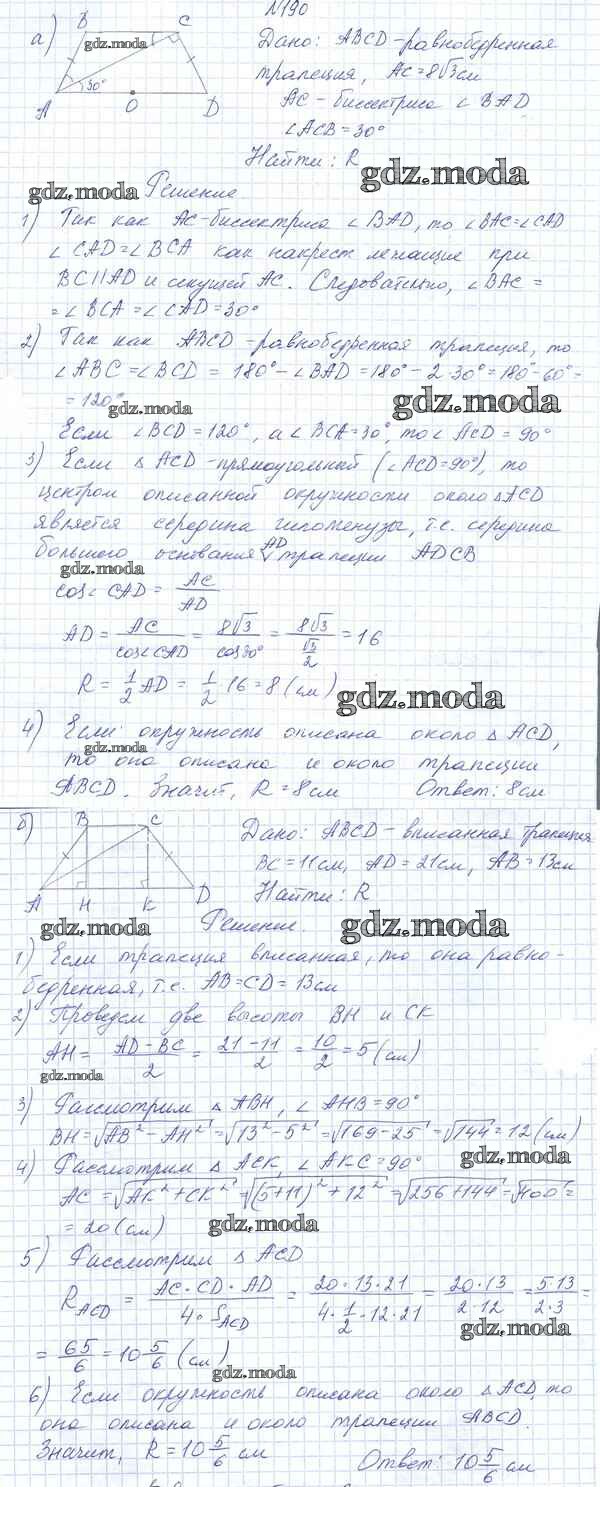 N 190
а) B C
gdz.moda
30°
A O D
Дано: ABCD - равнобедренная
трапеция, AC = 8√3 см
AC - биссектриса ∠BAD
∠ACB = 30°
Найти: R
gdz.moda
gdz.moda Решение
1) Так как AC - биссектриса ∠BAD, то ∠BAC = ∠CAD
∠CAD = ∠BCA как накрест лежащие при
BC || AD и секущей AC. Следовательно, ∠BAC =
= ∠BCA = ∠CAD = 30°
2) Так как ABCD - равнобедренная трапеция, то
∠ABC = ∠BCD = 180° - ∠BAD = 180° - 2·30° = 180 - 60° =
= 120°
gdz.moda gdz.moda
Если ∠BCD = 120°, а ∠BCA = 30°, то ∠ACD = 90°
3) Если △ACD - прямоугольный (∠ACD = 90°), то
центром описанной окружности около △ACD
является середина гипотенузы, т.е. середина
большего основания AD трапеции ADCB
gdz.moda
cos∠CAD = AC/AD
AD = AC/cos∠CAD = 8√3/cos30° = 8√3/(√3/2) = 16
R = 1/2 AD = 1/2 · 16 = 8 (см)
gdz.moda
4) Если окружность описана около △ACD,
gdz.moda
то она описана и около трапеции
ABCD. Значит, R = 8 см Ответ: 8 см
б) B C
A H K D
Дано: ABCD - вписанная трапеция
BC = 11 см, AD = 21 см, AB = 13 см
Найти: R
gdz.moda gdz.moda
Решение.
1) Если трапеция вписанная, то она равно-
бедренная, т.е. AB = CD = 13 см
2) Проведем две высоты BH и CK
AH = (AD - BC)/2 = (21 - 11)/2 = 10/2 = 5 (см)
gdz.moda
3) Рассмотрим △ABH, ∠AHB = 90°
BH = √(AB² - AH²) = √(13² - 5²) = √(169 - 25) = √144 = 12 (см)
4) Рассмотрим △ACK, ∠AKC = 90°
gdz.moda
AC = √(AK² + CK²) = √((5+11)² + 12²) = √(256 + 144) = √400 =
= 20 (см)
gdz.moda
5) Рассмотрим △ACD
R_ACD = (AC · CD · AD)/(4 · S_ACD) = (20 · 13 · 21)/(4 · 1/2 · 12 · 21) = (20 · 13)/(2 · 12) = (5 · 13)/(2 · 3) =
gdz.moda
= 65/6 = 10 5/6 (см)
gdz.moda
6) Если окружность описана около △ACD, то
она описана и около трапеции ABCD.
Значит, R = 10 5/6 см
Ответ: 10 5/6 см